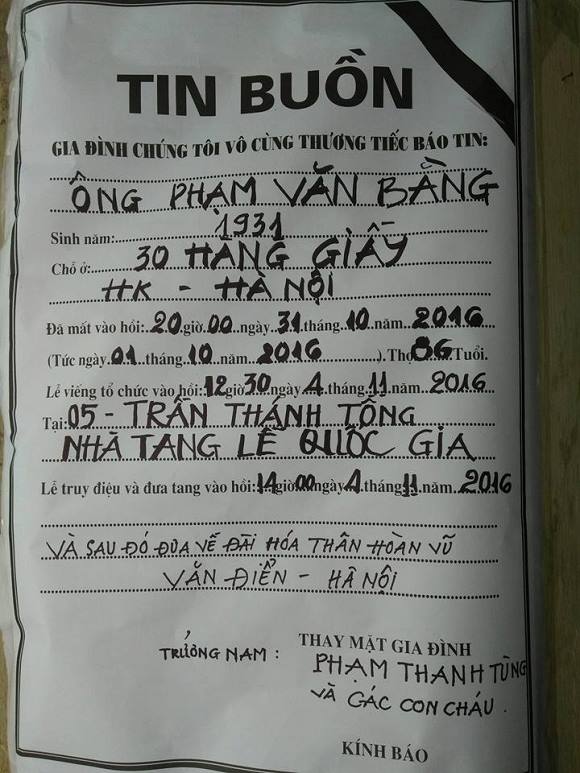 TIN BUỒN
GIA ĐÌNH CHÚNG TÔI VÔ CÙNG THƯƠNG TIẾC BÁO TIN:
ÔNG PHẠM VĂN BẰNG
Sinh năm: 1931
Chỗ ở: 30 HÀNG GIẤY
HK - HÀ NỘI
Đã mất vào hồi: 20 giờ 00 ngày 31 tháng 10 năm 2016
(Tức ngày 01 tháng 10 năm 2016). Thọ 86 Tuổi.
Lễ viếng tổ chức vào hồi: 12 giờ 30 ngày 4 tháng 11 năm 2016
Tại: 05 - TRẦN THÁNH TÔNG
NHÀ TANG LỄ QUỐC GIA
Lễ truy điệu và đưa tang vào hồi: 14 giờ 00 ngày 4 tháng 11 năm 2016
VÀ SAU ĐÓ ĐƯA VỀ ĐÀI HÓA THÂN HOÀN VŨ
VĂN ĐIỂN - HÀ NỘI
THAY MẶT GIA ĐÌNH
TRƯỞNG NAM: PHẠM THANH TÙNG
VÀ CÁC CON CHÁU.
KÍNH BÁO